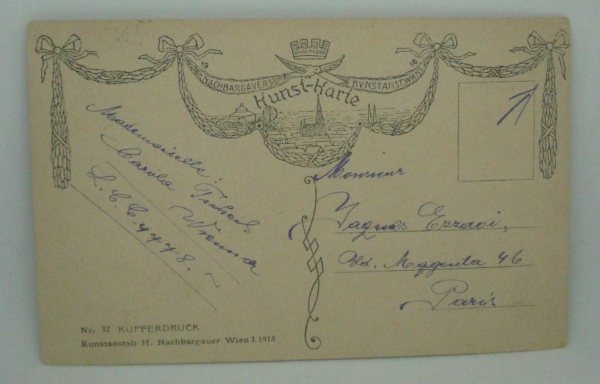 19 18
NACHBARGAUERS KUNSTANST. WIEN
Kunst-Karte
Mademoiselle:
Carola
Vienna
L.C.C. 4448.
Monsieur
Jaques
Bld. Maggenta 46
Paris
Nr. 32 KUPFERDRUCK
Kunstanstalt H. Nachbargauer Wien I. 1918